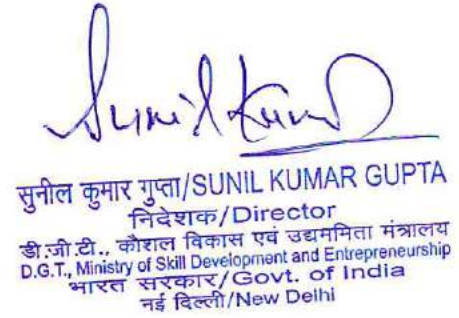 Sunil Kumar
सुनील कुमार गुप्ता/SUNIL KUMAR GUPTA
निदेशक/Director
डी.जी.टी., कौशल विकास एवं उद्यममिता मंत्रालय
D.G.T., Ministry of Skill Development and Entrepreneurship
भारत सरकार/Govt. of India
नई दिल्ली/New Delhi